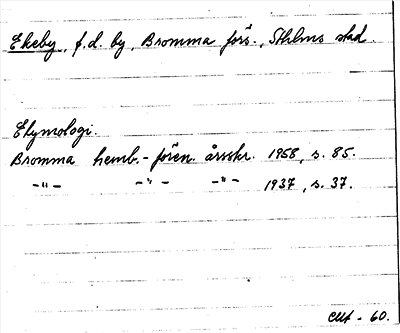 Ekeby, f.d. by, Bromma förs., Sthlms stad.
Etymologi.
Bromma hemb.-fören. årsskr. 1958, s. 85.
-"- -"- -"- 1937, s. 37.
- 60.